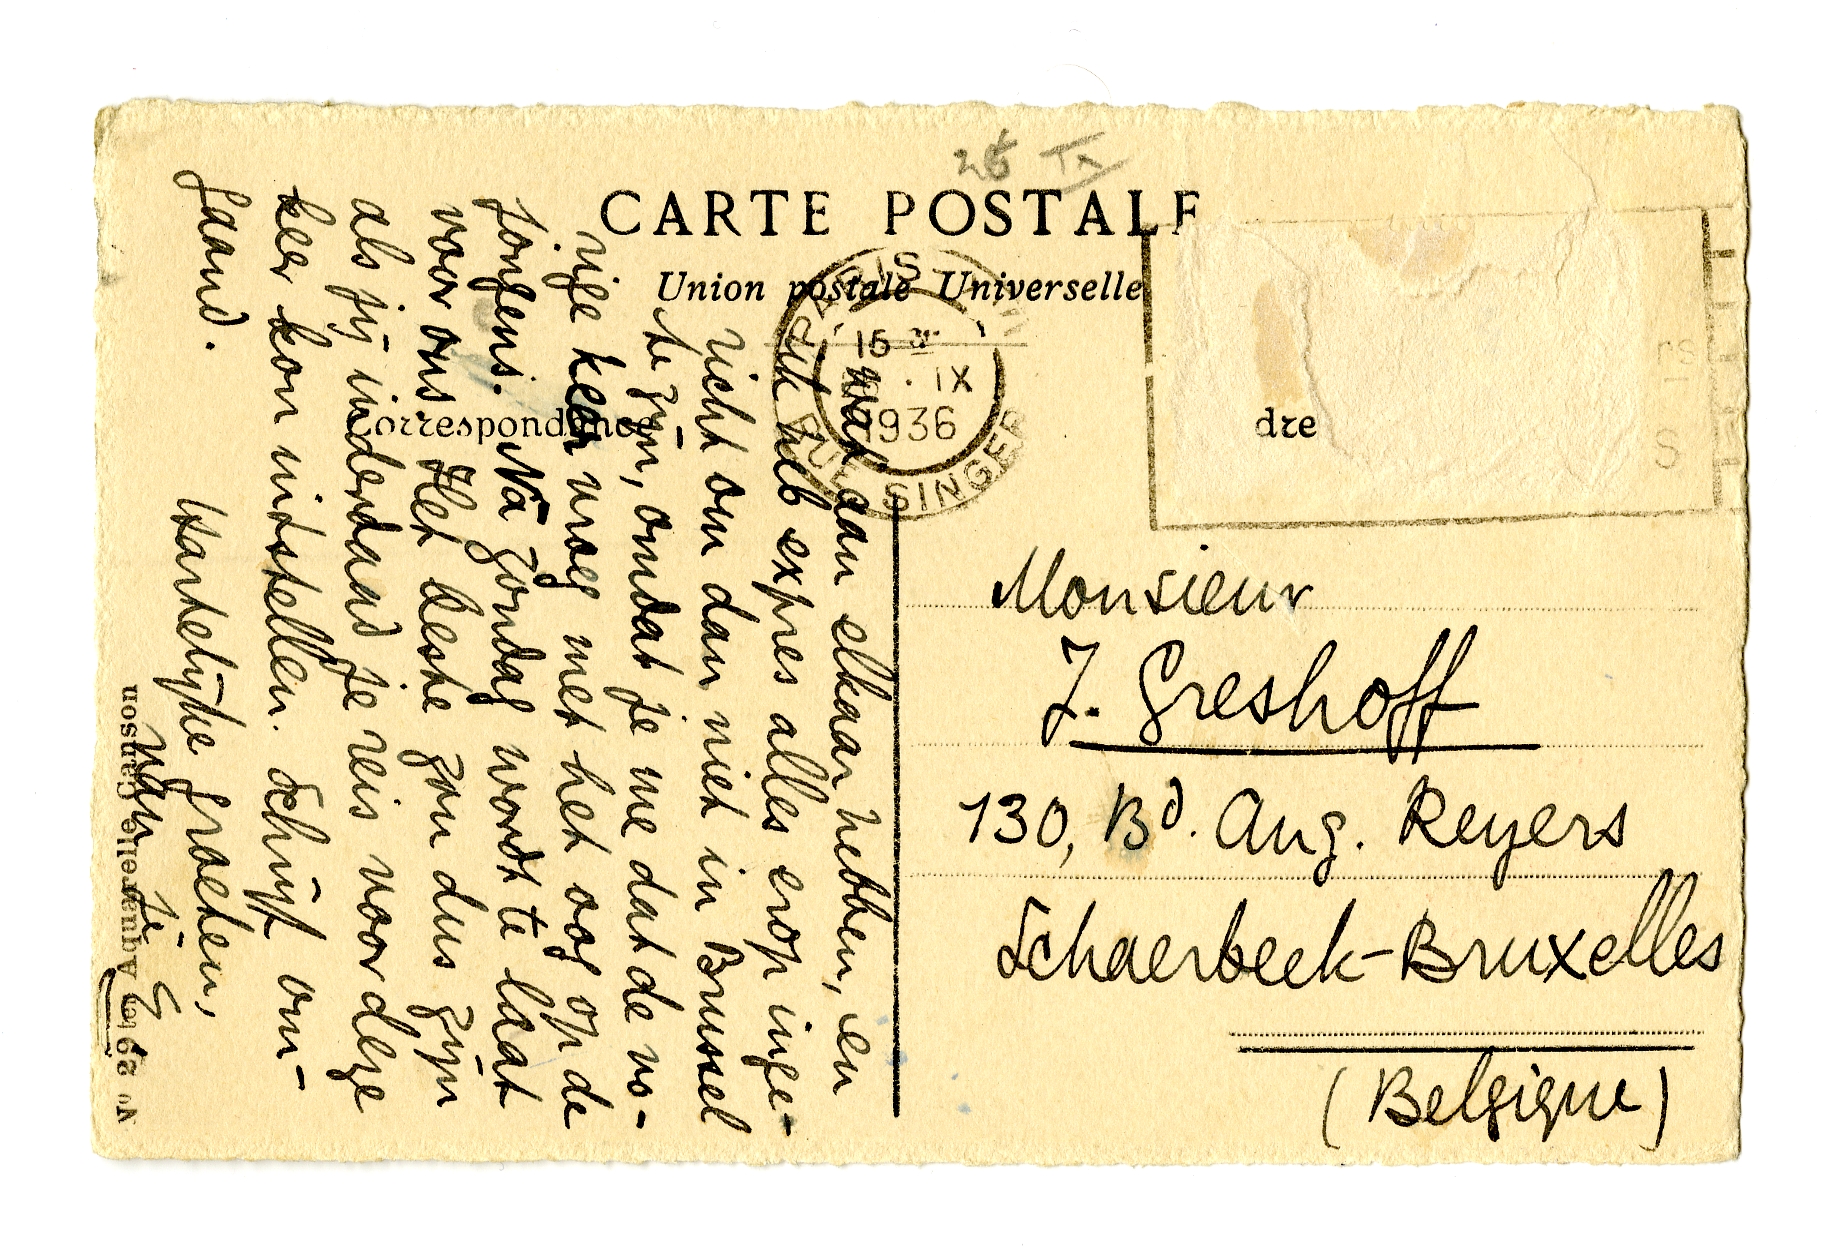 25 IX
CARTE POSTALE
Union postale Universelle
PARIS
15
IX
1936
RUE SINGER
Correspondance
dre
rs
S
wat aan elkaar hebben, en
ik heb expres alles erop inge-
richt om dan niet in Brussel
te zijn, omdat je me dat de vo-
rige keer vroeg met het oog op de
jongens. Na zondag wordt te laat
voor ons. Het beste zou dus zijn
als jij inderdaad je reis voor deze
keer kon uitstellen. Schrijf om-
gaand.
Hartelijke groeten,
van je
E
No 29 bis Aquarelle Garison
Monsieur
J. Greshoff
130, Bd. Aug. Reyers
Schaerbeek-Bruxelles
(Belgique)